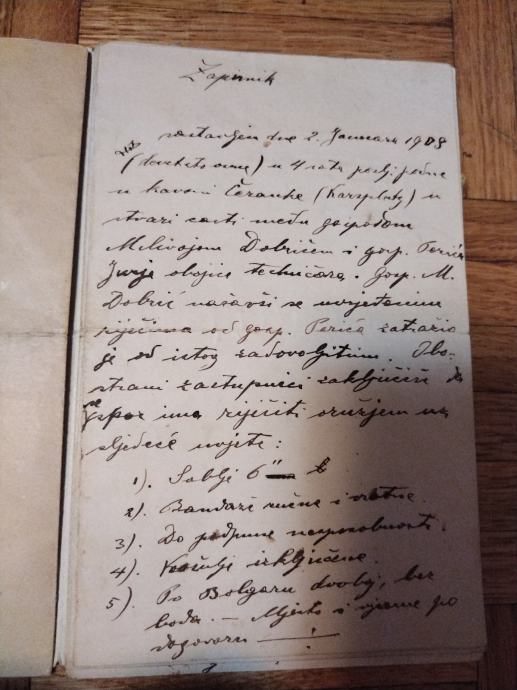 Zapisnik
sastavljen dne 2. Januara 1908
(devetsto osme) u 4 sata poslje podne
u kavani Čeranke (Karsplatz) u
stvari časti među gospodom
Milivojom Dobrićem i gosp. Perić
Jurja obojice tehničara. Gosp. M.
Dobrić našavši se uvrjeđenim
riječima od gosp. Perića zatražio
je od istog zadovoljštinu. Obo-
strani zastupnici zaključiše da
se spor ima riješiti oružjem uz
sljedeće uvjete:
1). Sablje 6"
2). Bandaže ručne i vratne.
3). Do podpune nesposobnosti.
4). Košulje izključene.
5). Po Bolgaru dvoboj, bez
boda. — Mjesto i vrijeme po
dogovoru —